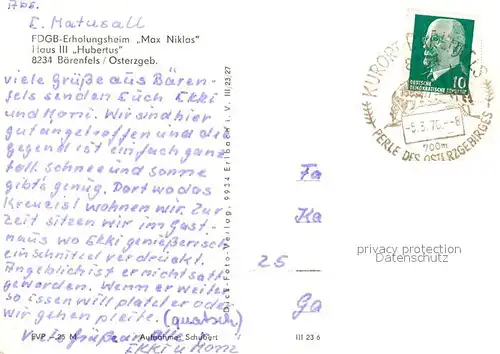 Abs.
E. Matusall
FDGB-Erholungsheim „Max Niklas"
Haus III „Hubertus"
8234 Bärenfels / Osterzgeb.
viele Grüße aus Bären-
fels senden Euch Ekki
und Moni. Wir sind hier
gut angetroffen und die
gegend ist einfach ganz
toll. Schnee und Sonne
gibts genug. Dort wo das
Kreuz ist wohnen wir. Zur
zeit sitzen wir im Gast-
haus wo Ekki genießerisch
ein Schnitzel verdrückt.
Angeblich ist er nicht satt
geworden. Wenn er weiter
so essen will platzt er oder
wir gehen pleite. (quatsch)
viele Grüße
Ekki u Moni
EVP —,25 M Aufnahme: Schubert
III 23 6
Dick-Foto-Verlag, 9934 Erlbach i. V. III 23 27
DEUTSCHE
DEMOKRATISCHE REPUBLIK
10
KURORT
-5.3.76.--8
700m
PERLE DES OSTERZGEBIRGES
Fa
Ka
25
Ga
privacy protection
Datenschutz